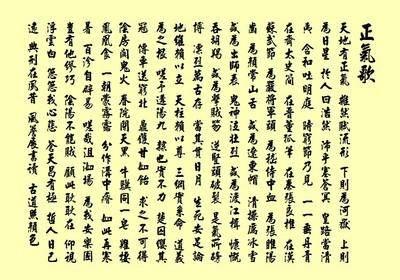 正氣歌
天地有正氣 雜然賦流形 下則為河嶽 上則
為日星 於人曰浩然 沛乎塞蒼冥 皇路當清
夷 含和吐明庭 時窮節乃見 一一垂丹青
在齊太史簡 在晉董狐筆 在秦張良椎 在漢
蘇武節 為嚴將軍頭 為嵇侍中血 為張睢陽
齒 為顏常山舌 或為遼東帽 清操厲冰雪
或為出師表 鬼神泣壯烈 或為渡江楫 慷慨
吞胡羯 或為擊賊笏 逆豎頭破裂 是氣所磅
礴 凛烈萬古存 當其貫日月 生死安足論
地維賴以立 天柱賴以尊 三綱實系命 道義
為之根 嗟予遘陽九 隸也實不力 楚囚纓其
冠 傳車送窮北 鼎鑊甘如飴 求之不可得
陰房闃鬼火 春院閟天黑 牛驥同一皂 雞棲
鳳凰食 一朝蒙霧露 分作溝中瘠 如此再寒
暑 百沴自辟易 嗟哉沮洳場 為我安樂國
豈有他繆巧 陰陽不能賊 顧此耿耿在 仰視
浮雲白 悠悠我心悲 蒼天曷有極 哲人日已
遠 典刑在夙昔 風簷展書讀 古道照顏色